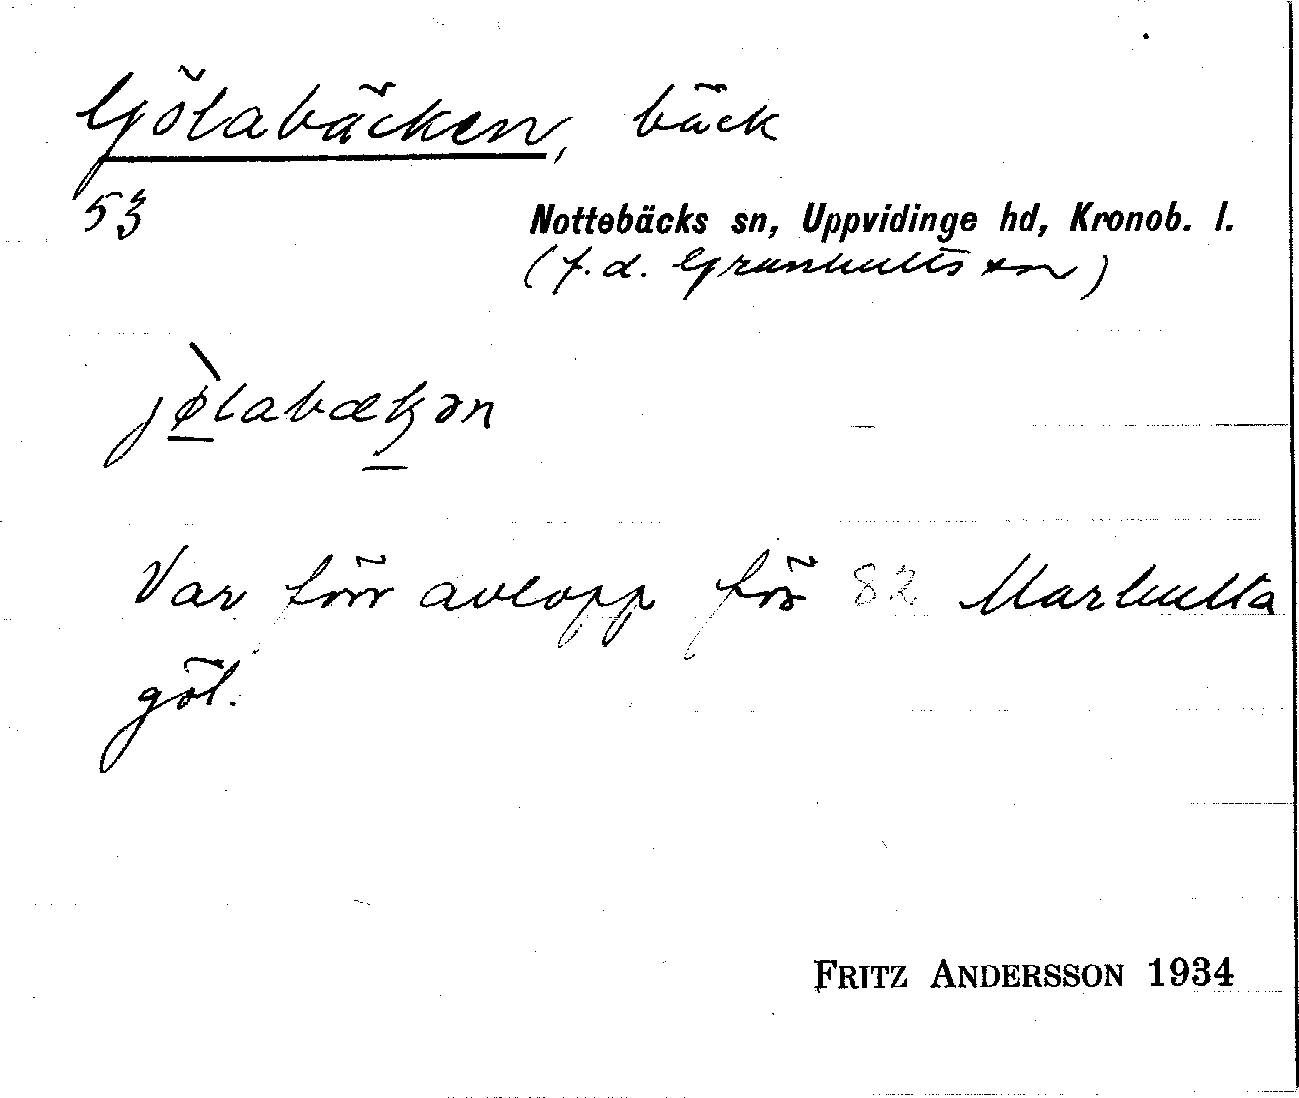 Gölabäcken, bäck
53
Nottebäcks sn, Uppvidinge hd, Kronob. l.
(f. d. Granhults sn)
jø̀labækən
Var förr avlopp för 82 Marhulta
göl.
FRITZ ANDERSSON 1934